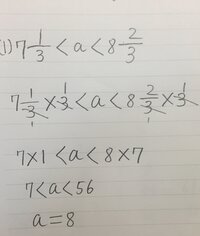 (1) 7 1/3 < a < 8 2/3
7 1/3 × 3 < a < 8 2/3 × 3
1 1 1 1
7×1 < a < 8×7
7 < a < 56
a = 8